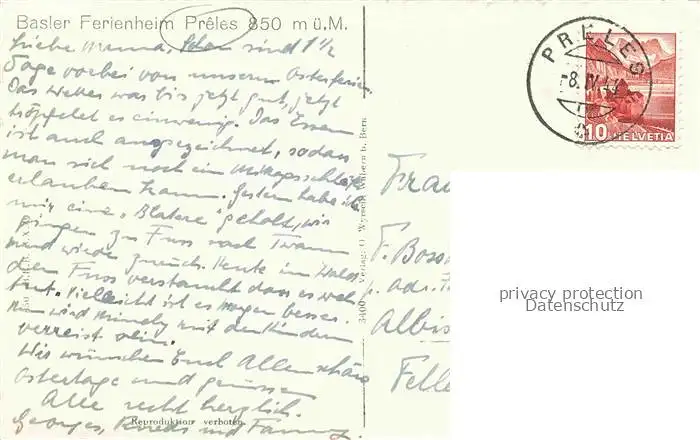 Basler Ferienheim Prêles 850 m ü.M.
Liebe Mama, Schon sind 1 1/2
Tage vorbei von unseren Osterferien.
Das Wetter war bis jetzt gut, jetzt
tröpfelet es ein wenig. Das Essen
ist auch ausgezeichnet, sodass
man sich noch ein Mittagsschläfli
erlauben kann. Gestern habe ich
mir eine "Blatere" geholt, wir
gingen zu Fuss nach Twann
und wieder zurück. Heute im Wald
den Fuss verstaucht dass es weh
tut. Vielleicht ist es morgen besser.
Nun wird mit den Kindern
verreist sein.
Wir wünschen Euch Allen schöne
Ostertage und grüssen
Alle recht herzlich.
Georges, und Fanny.
Reproduktion verboten.
3400 Verlag: O. Wyrsch, Wabern b. Bern.
PRÊLES
-8.IV.
10 HELVETIA
Frau
F. Boss
adr.
Albis
Felle
privacy protection
Datenschutz